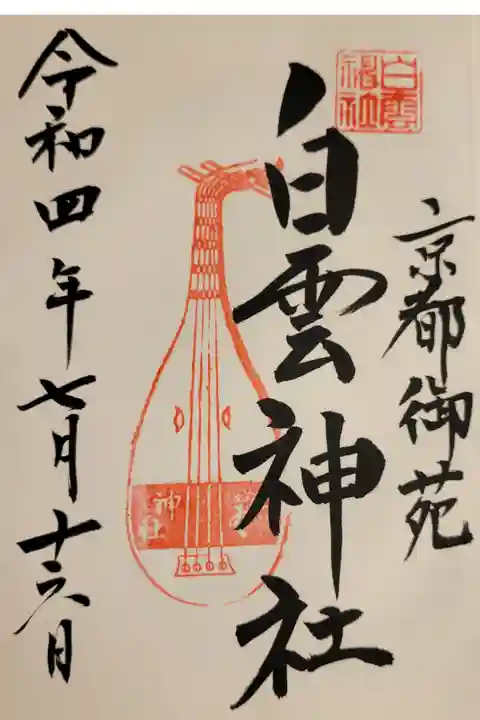 京都御苑
白雲神社
白雲
神社
神社
令和四年七月十六日